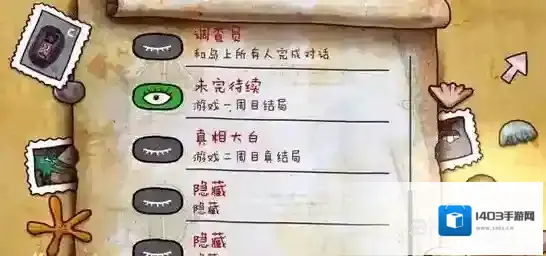 调查员
和岛上所有人完成对话
未完待续
游戏一周目结局
真相大白
游戏二周目真结局
隐藏
隐藏
隐藏
1403手游网